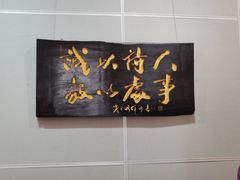 誠以待人
毅以處事